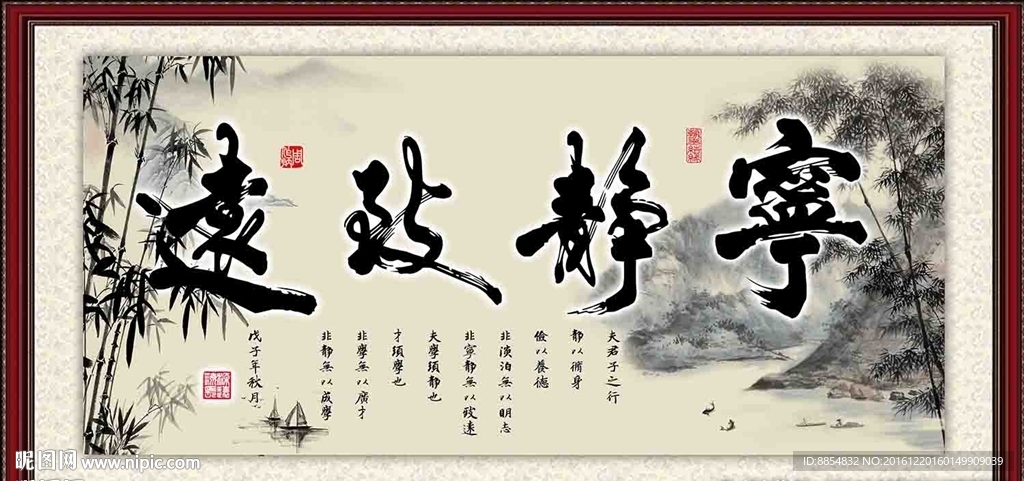 寧靜致遠
夫君子之行
靜以脩身
儉以養德
非淡泊無以明志
非寧靜無以致遠
夫學須靜也
才須學也
非學無以廣才
非靜無以成學
戊子年秋月
昵图网 www.nipic.com
ID:8854832 NO:20161220160149909039